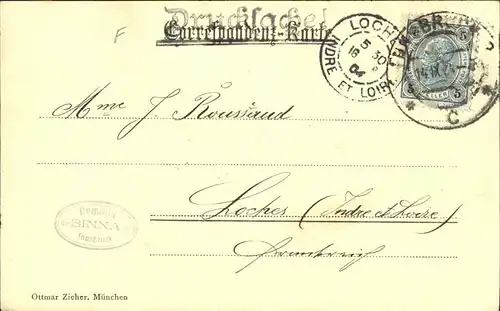 Drucksache!
Correspondenz-Karte
F
LOCHES
5 30
16
04
INDRE ET LOIRE
14.IX.
5 5
HELLER
* C *
Mme J Roussaud
Loches (Indre et Loire)
Frankreich
Dominik
BINNA
Innsbruck
Ottmar Zieher. München